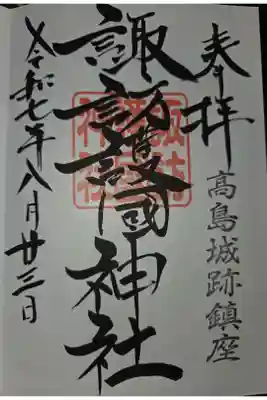 奉拝
高島城跡鎮座
諏訪護國神社
令和七年八月廿三日